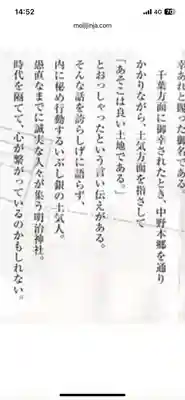 14:52
70
meijijinja.com
幸あれと賜った御名である。
千葉方面に御幸されたとき、中野本郷を通り
かかりながら、土気方面を指さして
「あそこは良い土地である。」
とおっしゃったという言い伝えがある。
そんな話を誇らしげに語らず、
内に秘め行動するいぶし銀の土気人。
愚直なまでに誠実な人々が集う明治神社。
時代を隔てて、心が繋がっているのかもしれない。